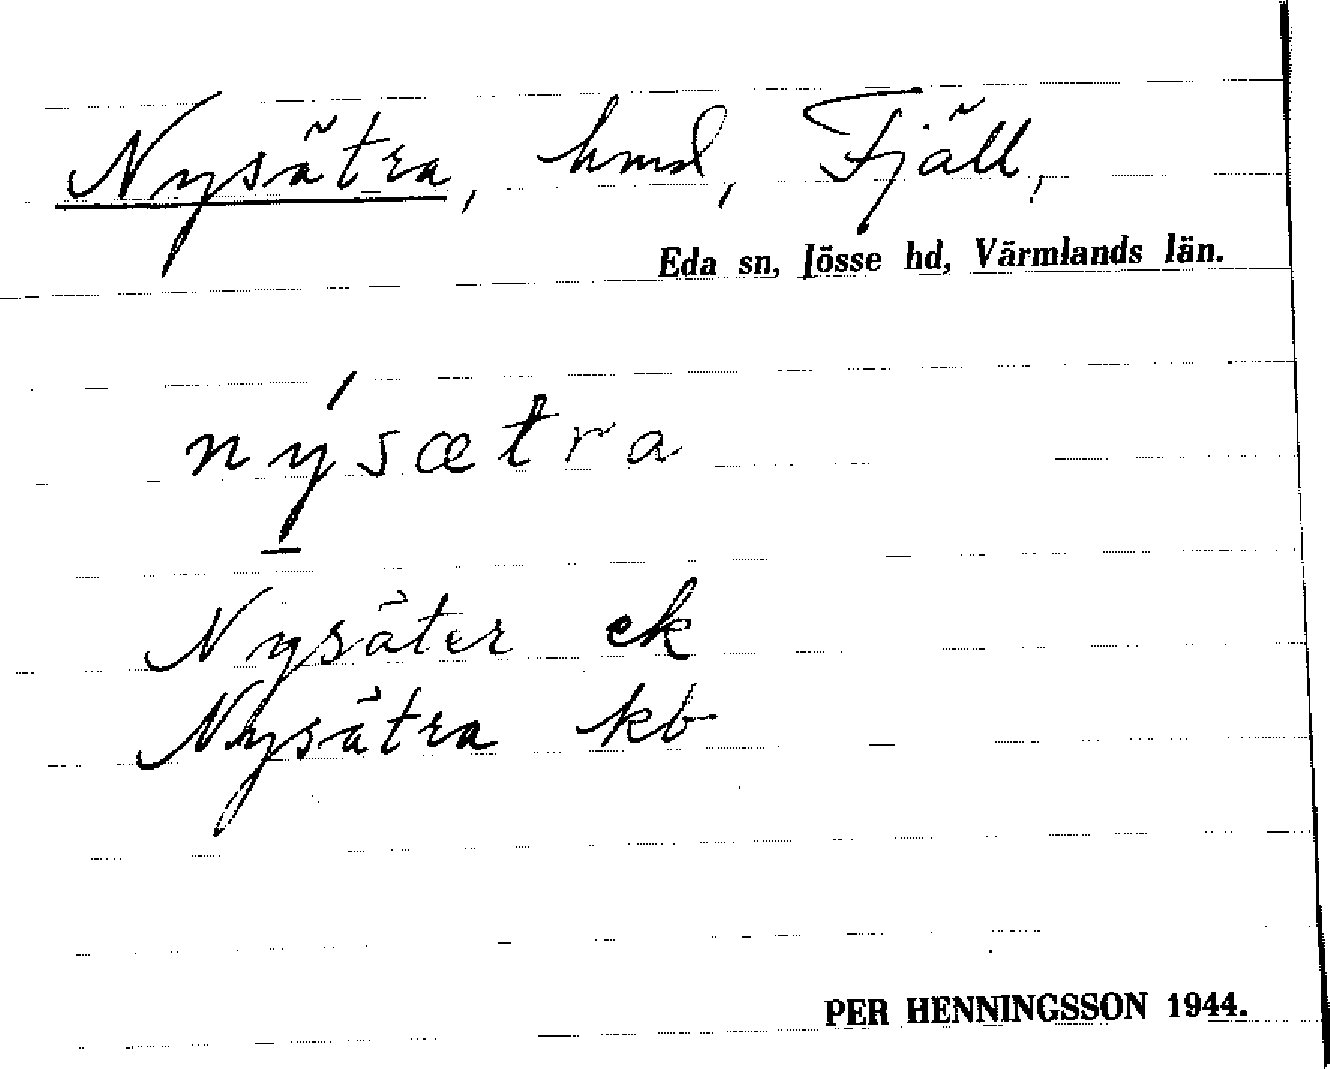 Nysätra, hmd, Fjäll,
Eda sn, Jösse hd, Värmlands län.
nýsætra
Nysäter ek
Nysätra kb
PER HENNINGSSON 1944.